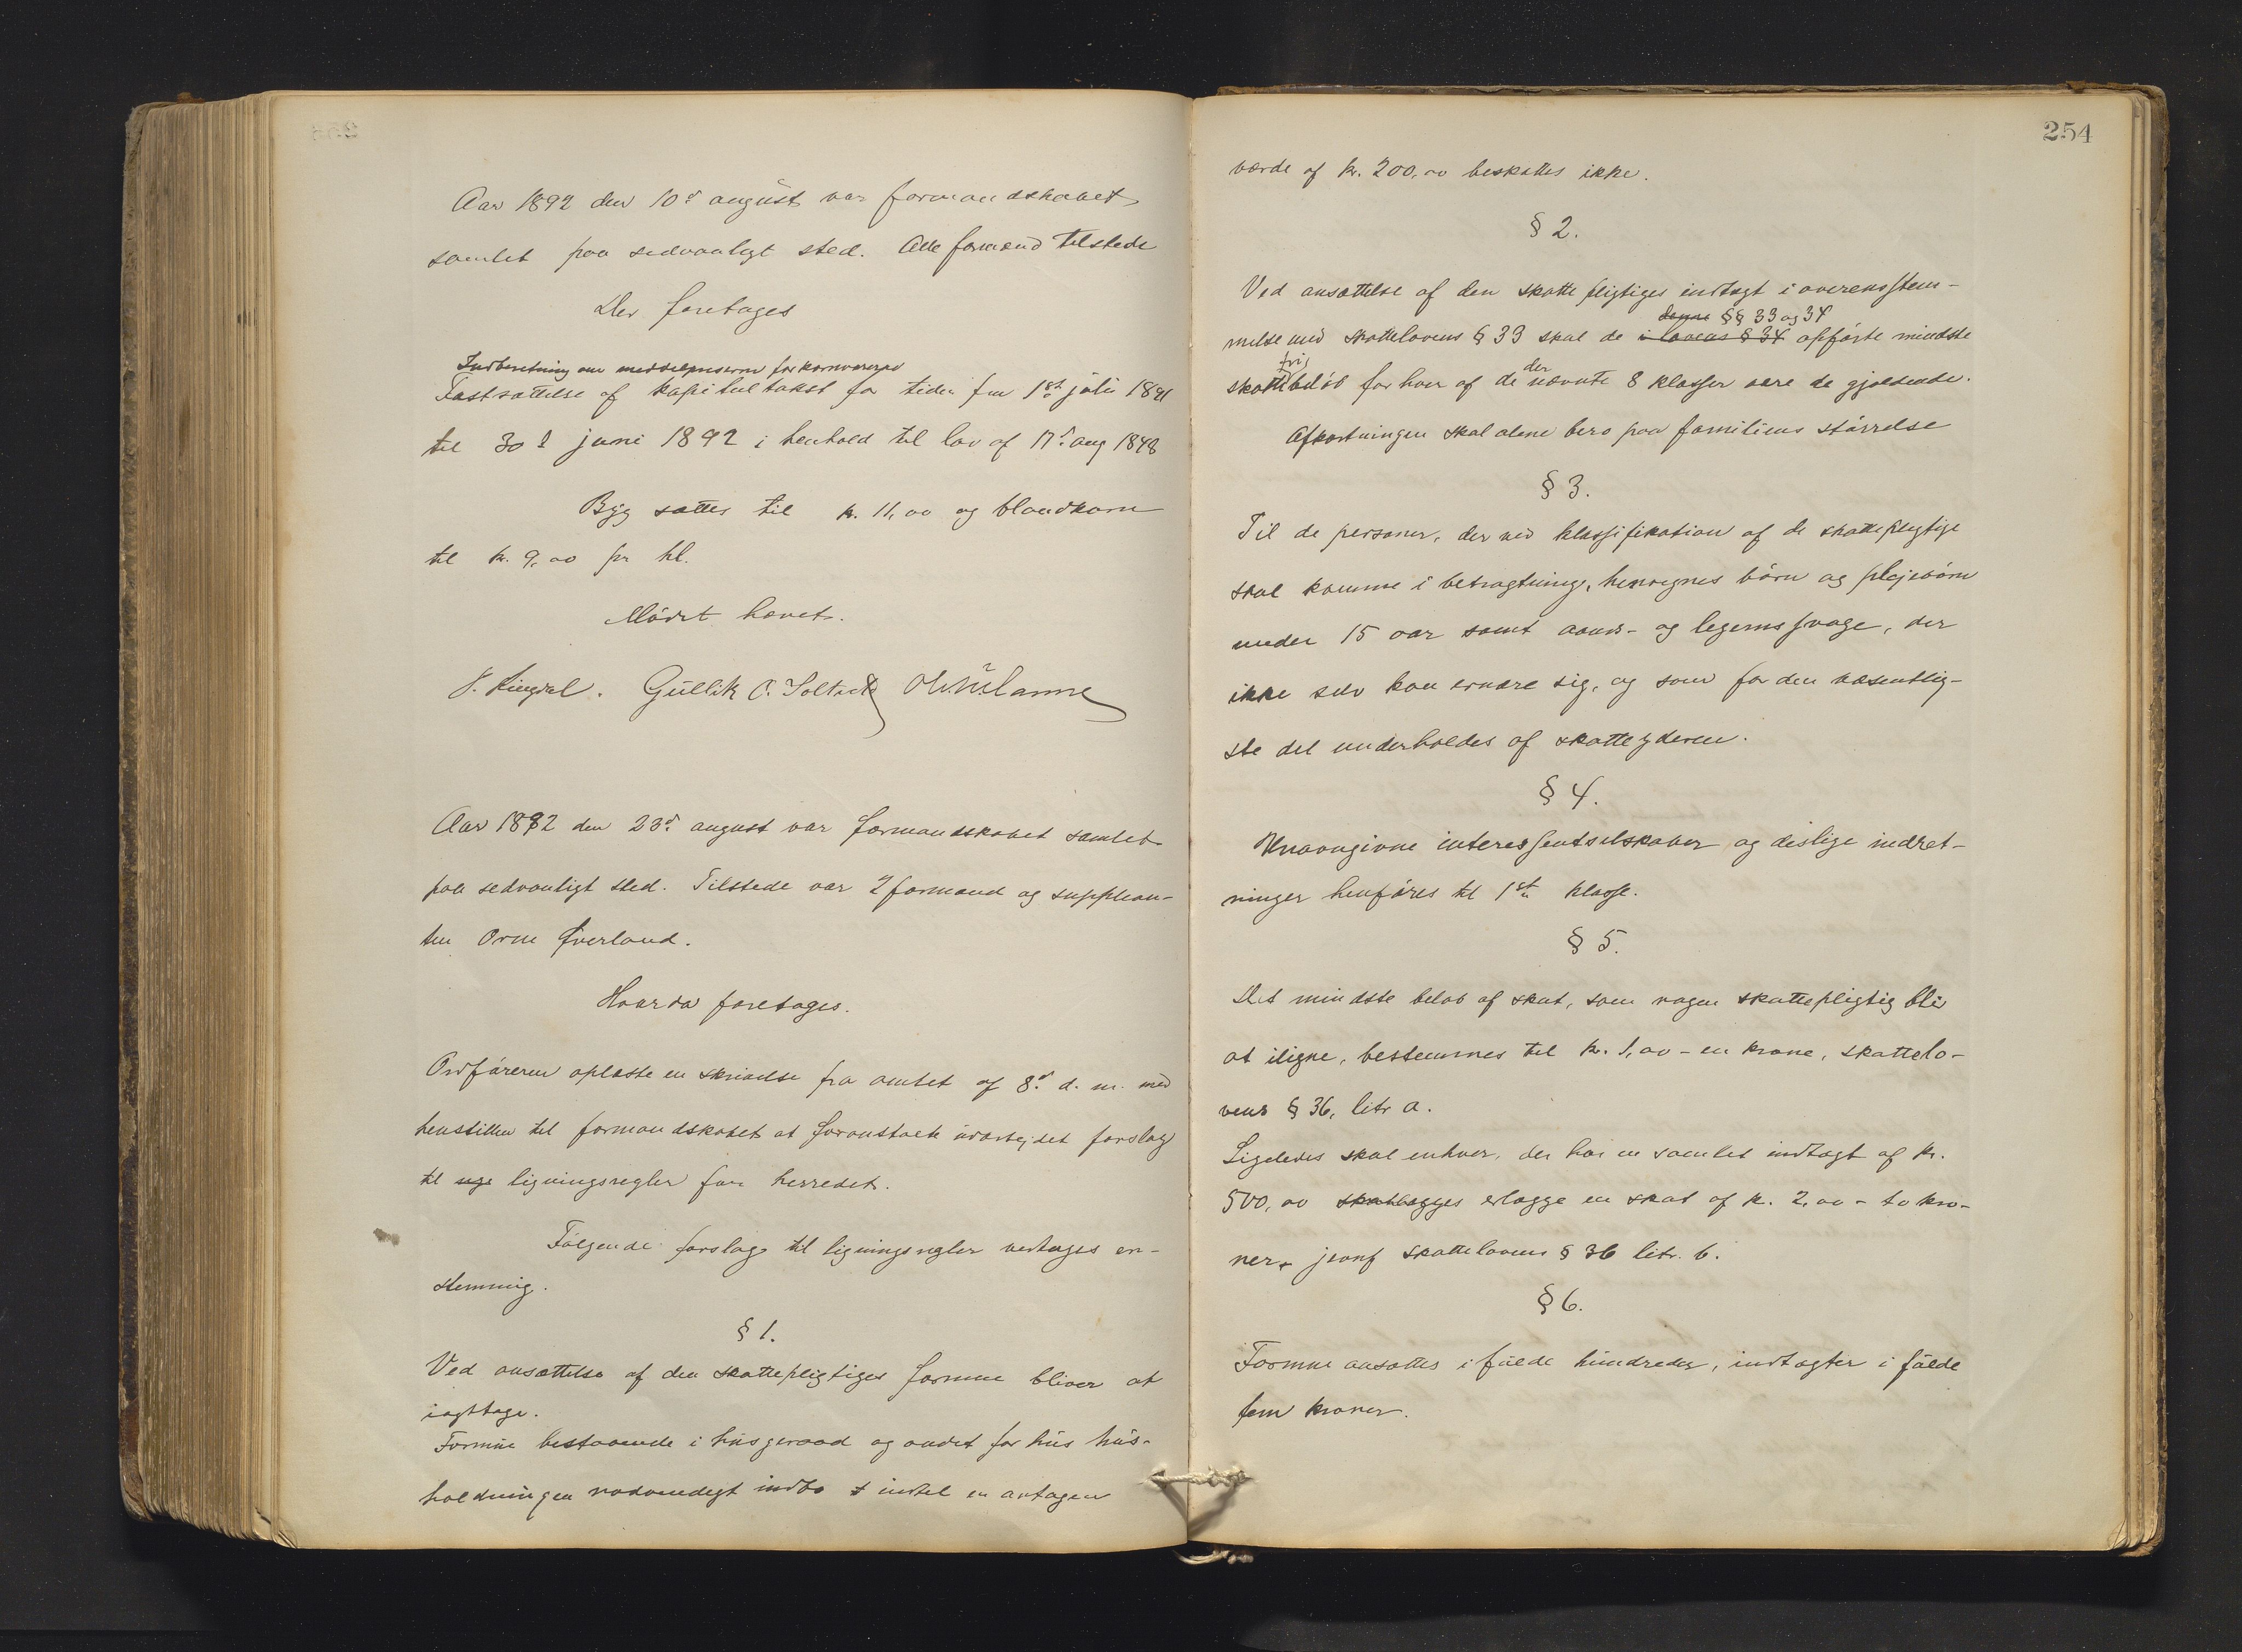 Aar 1892 den 10de august var formandskabet
samlet paa sedvanligt sted. Alle formænd tilstede
Der foretages
Indberetning om middelpriserne for kornvarer
Fastsættelse af kapitelstakst for tiden fra 1ste juli 1891
til 30te juni 1892 i henhold til lov af 17de aug 1848
Byg sættes til kr. 11,00 og blandkorn
til kr. 9,00 pr hl.
Mødet hævet.
Gullik O.
Aar 1892 den 23de august var formandskabet samlet
paa sedvanligt sted. Tilstede var 2 formænd og supplean-
ten Orm Øverland.
Hvorda foretages.
Ordføreren oplæste en skrivelse fra amtet af 8de d. m. med
henstillen til formandskabet at foranstalte udarbejdet forslag
til nye ligningsregler for herredet.
Følgende forslag til ligningsregler vedtages en-
stemmig.
§ 1.
Ved ansættelse af den skattepligtiges formue bliver at
iagttage.
Formue bestaaende i husgeraad og andet for hus hus-
holdningen nødvendigt indbo indtil en antagen
254
værde af kr. 200,00 beskattes ikke.
§ 2.
Ved ansættelse af den skattepligtiges indtægt i overensstem-
denne §§ 33 og 34
melse med skattelovens § 33 skal de i lovens § 34 opførte mindste
fri der
skattebeløb for hver af de nævnte 8 klasser være de gjældende.
Afkortningen skal alene bero paa familiens størrelse
§ 3.
Til de personer, der ved klassifikation af de skattepligtige
skal komme i betragtning, henregnes børn og plejebørn
under 15 aar samt aands- og legemssvage, der
ikke selv kan ernære sig, og som for den væsentlig-
ste del underholdes af skatteyderen.
§ 4.
Unavngivne interessentselskaber og deslige indret-
ninger henføres til 1ste klasse.
§ 5.
Det mindste beløb af skat, som nogen skattepligtig bli
at iligne, bestemmes til kr. 1,00 - en krone, skattelo-
vens § 36, litr a.
Ligeledes skal enhver, der har en samlet indtægt af kr.
500,00 skatlægges erlægge en skat af kr. 2,00 - to kro-
ner, jevnf skattelovens § 36 litr. b.
§ 6.
Formue ansættes i fulde hundreder, indtægter i fulde
fem kroner.